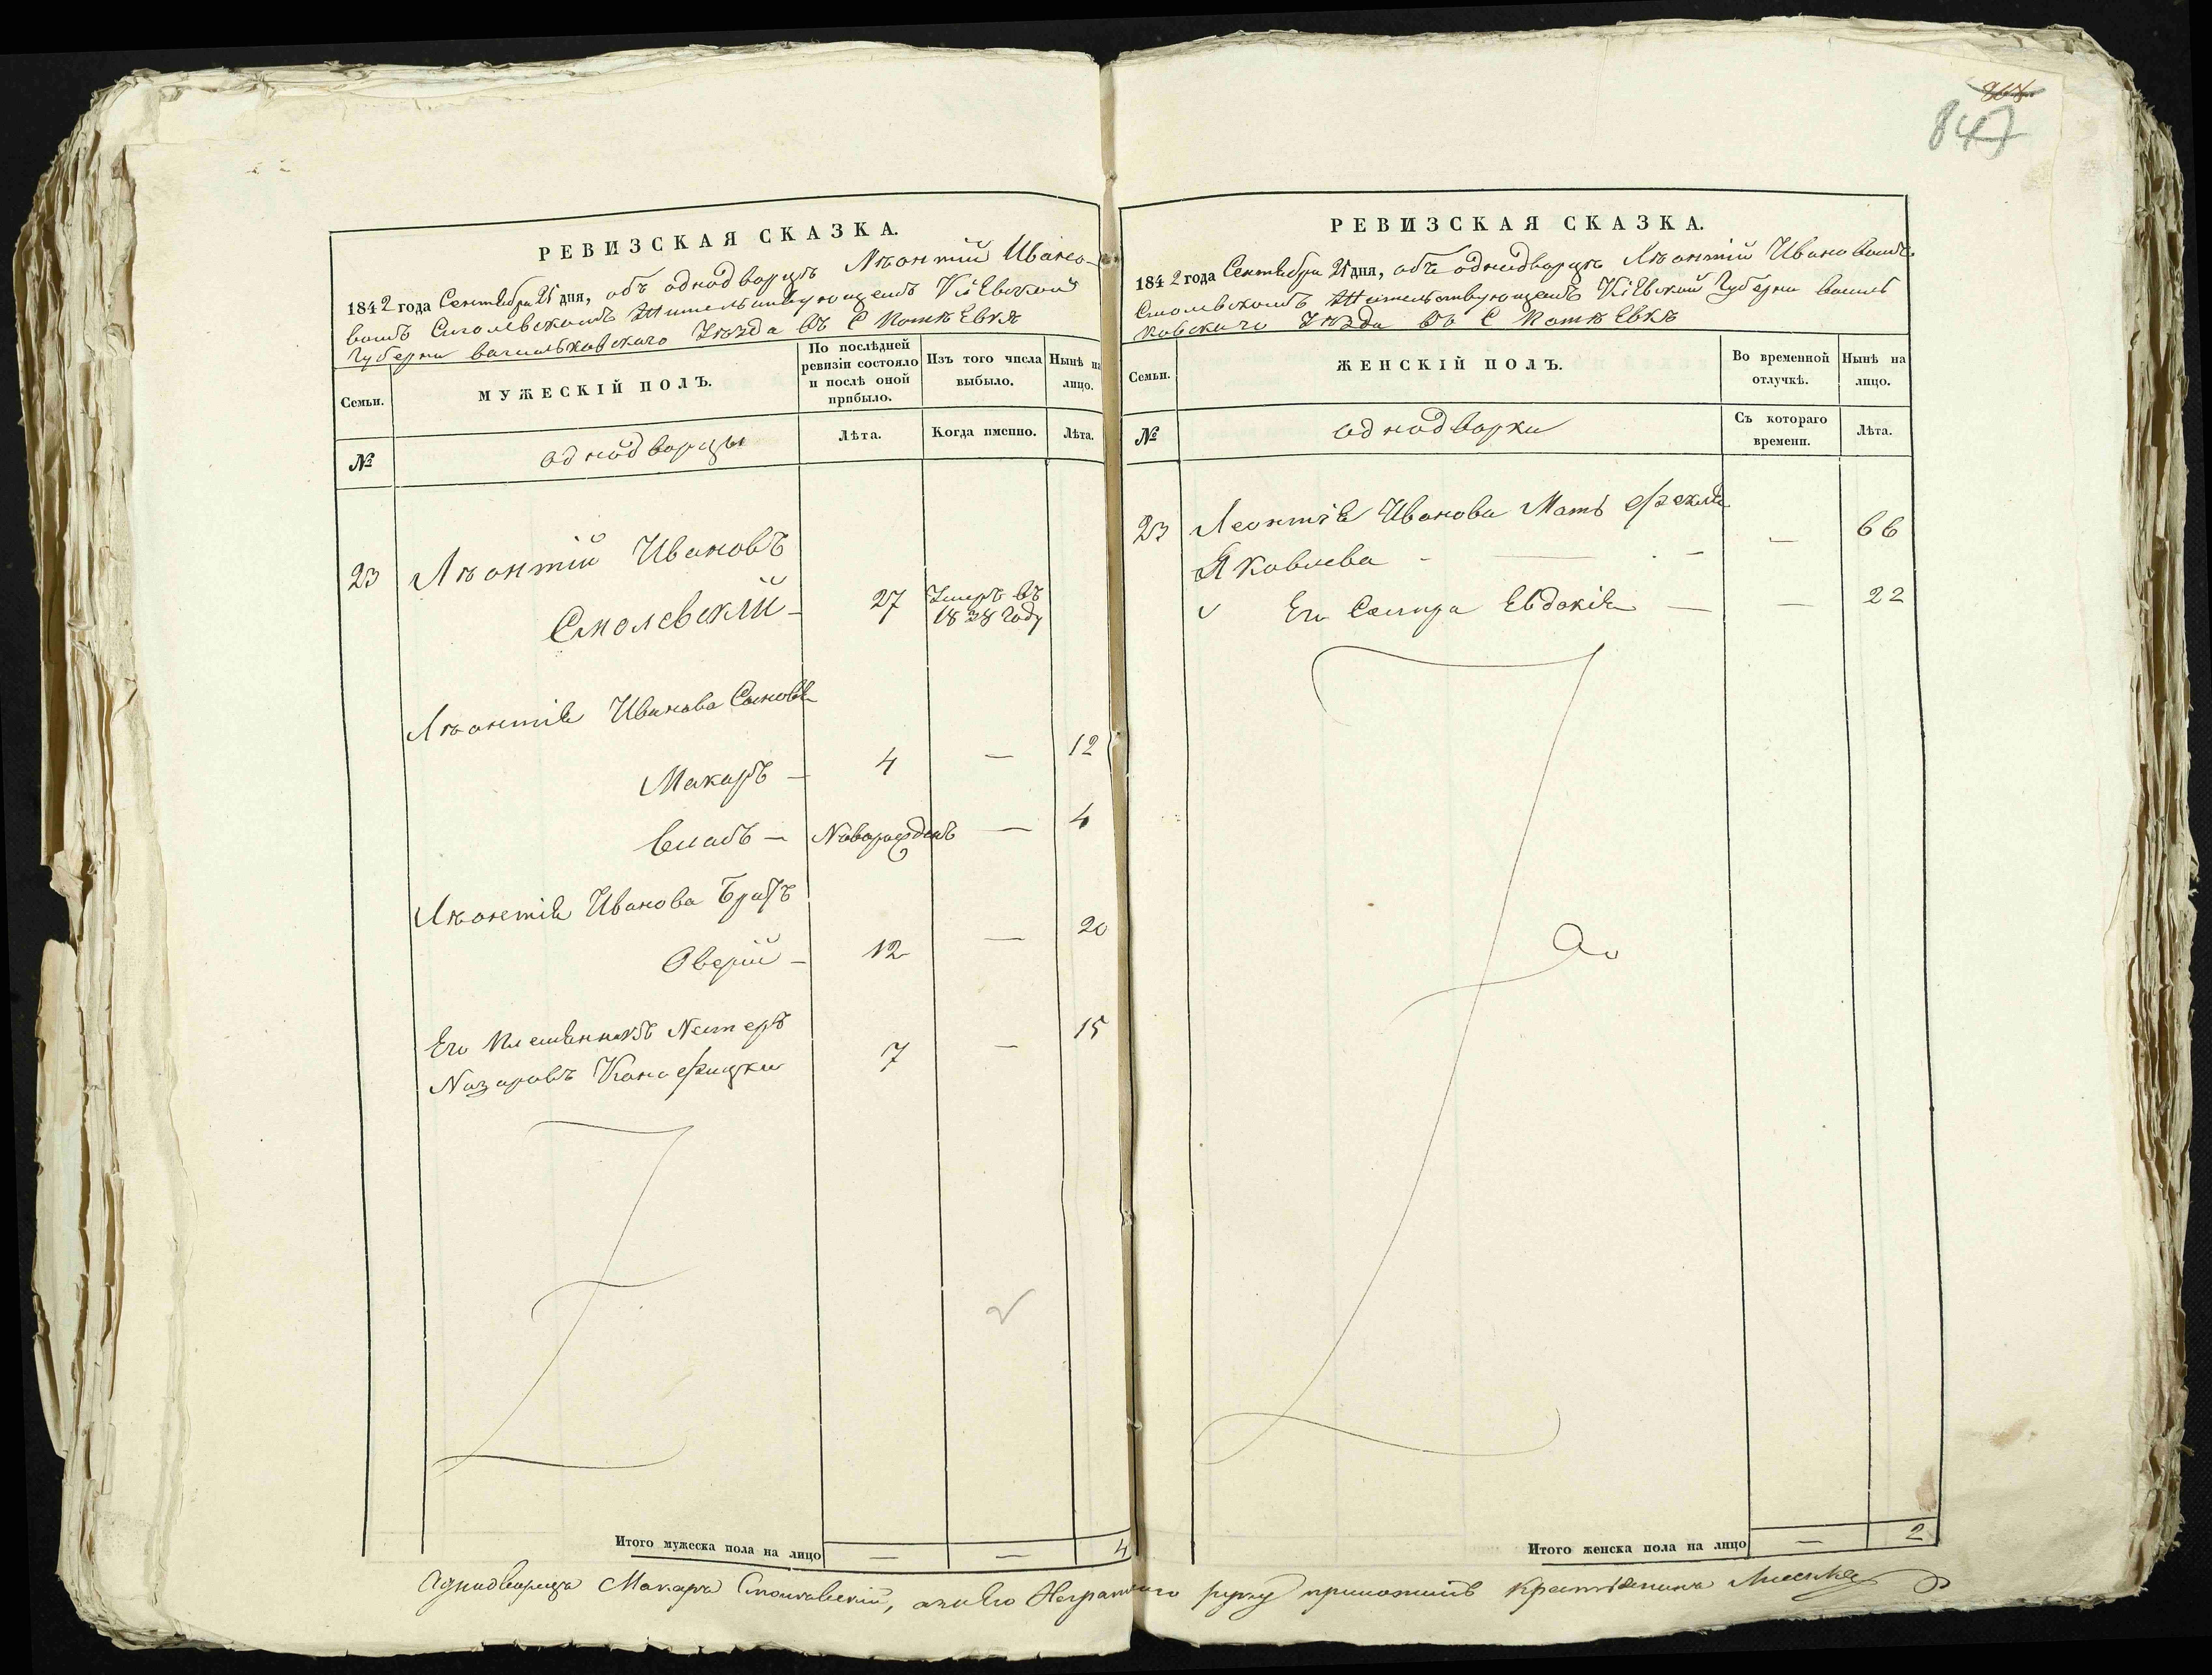 868
847
РЕВИЗСКАЯ СКАЗКА.
1842 года Сентября 25 дня, объ однодворцѣ Лѣонтій Ивано-
вомъ Смолевскомъ Жительствующемъ Кіевской
Губерни васильковскаго Уѣзда въ С Потѣевкѣ
Семьи.
МУЖЕСКІЙ ПОЛЪ.
По послѣдней ревизіи состояло и послѣ оной прибыло.
Изъ того числа выбыло.
Нынѣ на лицо.
№
однодворцы
Лѣта.
Когда именно.
Лѣта.
23 Лѣонтій Ивановъ
Смолевскій - 27 Умеръ въ
1838 году
Лѣонтія Иванова Сыновья
Макаръ - 4 — 12
Власъ - Новорожденъ — 4
Лѣонтія Иванова Братъ
Оверій - 12 — 20
Его Племянникъ Нестеръ
Назаровъ 7 — 15
Итого мужеска пола на лицо — — 4
РЕВИЗСКАЯ СКАЗКА.
1842 года Сентября 25 дня, объ однодворцѣ Лѣонтій Ивановомъ
Смолевскомъ Жительствующемъ Кіевской Губерни василь
ковскаго Уѣзда въ С Потѣевкѣ
Семьи.
ЖЕНСКІЙ ПОЛЪ.
Во временной отлучкѣ.
Нынѣ на лицо.
№
однодворки
Съ котораго времени.
Лѣта.
23 Леонтія Иванова Мать Фекла
Яковлева - — - — 66
Его Сестра Евдокія — — 22
Итого женска пола на лицо — 2
Однодворецъ Макаръ Смолявскій, а за Его Неграмотнаго руку приложилъ Крестьянинъ